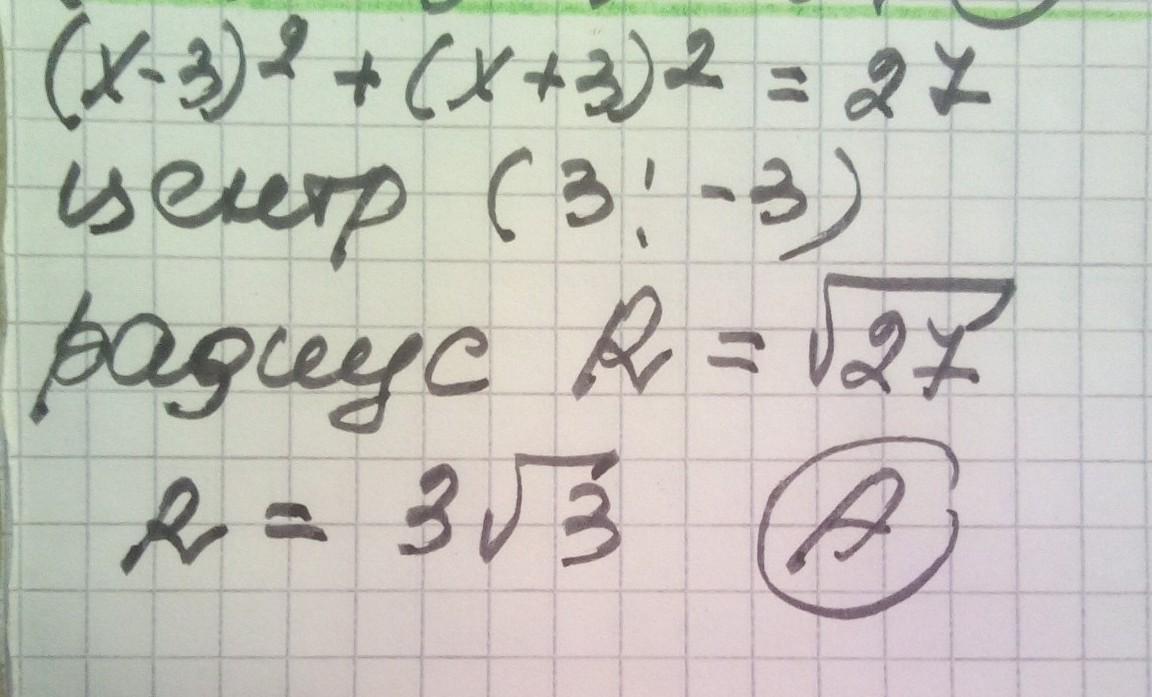 (x-3)² + (x+3)² = 27
центр (3; -3)
радиус R = √27
R = 3√3 А